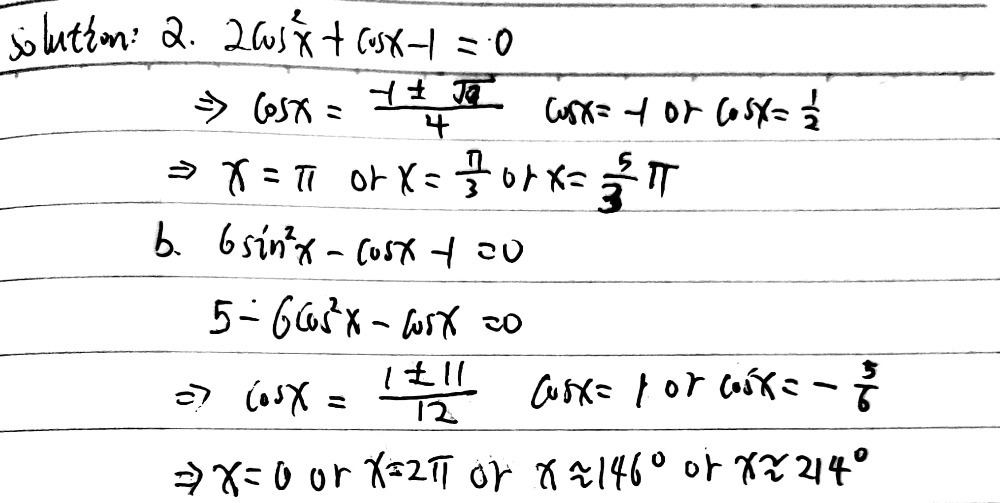 solution: a. 2cos²x + cosx - 1 = 0
⇒ cosx = (-1 ± √9)/4 cosx = -1 or cosx = 1/2
⇒ x = π or x = π/3 or x = 5/3 π
b. 6sin²x - cosx - 1 = 0
5 - 6cos²x - cosx = 0
⇒ cosx = (1 ± 11)/12 cosx = 1 or cosx = - 5/6
⇒ x = 0 or x = 2π or x ≈ 146° or x ≈ 214°